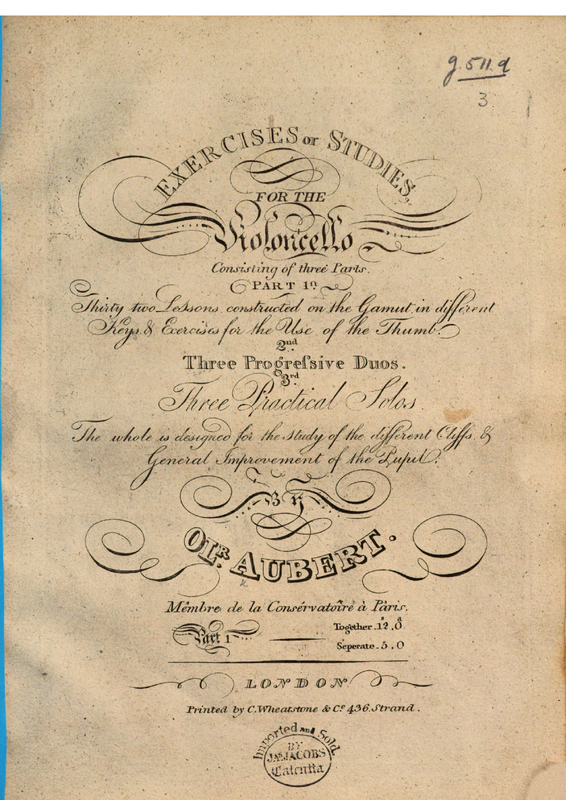 g.511.q
3
EXERCISES or STUDIES
FOR THE
Violoncello
Consisting of three Parts.
PART 1st
Thirty two Lessons, constructed on the Gamut, in different
Keys, & Exercises for the Use of the Thumb.
2nd
Three Progreſsive Duos.
3rd
Three Practical Solos
The whole is designed for the study of the different Cliffs, &
General Improvement of the Pupil.
BY
OLR. AUBERT.
Mêmbre de la Consérvatoire à Pâris.
Part 1
Together. 12,0
Seperate. 5,0
LONDON
Printed by C. Wheatstone & Co. 436, Strand.
Imported and Sold
BY
JAs. JACOBS
Calcutta